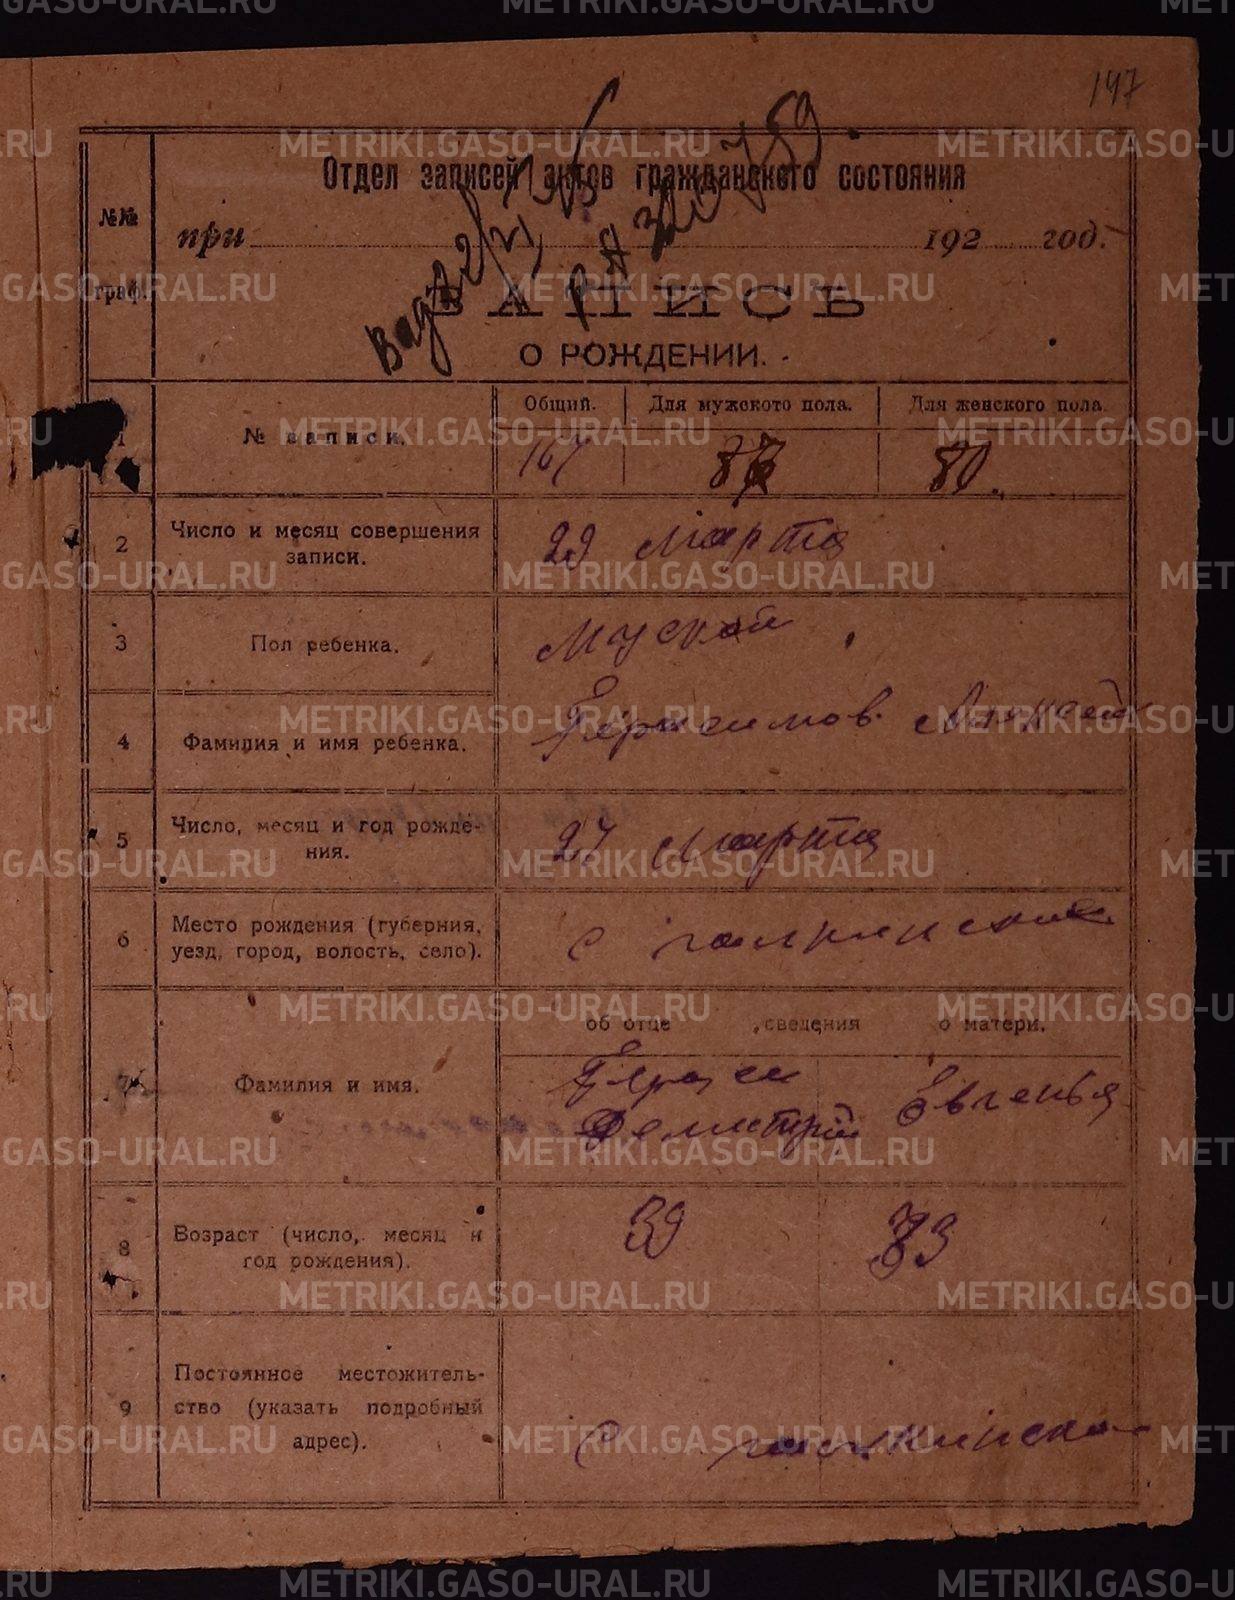 197
Отдел записей актов гражданского состояния
№№ граф.
при 192 год.
ЗАПИСЬ
О РОЖДЕНИИ.
Общий. Для мужского пола. Для женского пола.
1 № записи. 167 87 80.
2 Число и месяц совершения
записи.
29 марта
3 Пол ребенка. Муской
4 Фамилия и имя ребенка. Герасимов Алексей
5 Число, месяц и год рожде-
ния.
27 марта
6 Место рождения (губерния,
уезд, город, волость, село).
с
об отце сведения о матери.
7 Фамилия и имя.
Евгенья
8 Возраст (число, месяц и
год рождения).
39
9 Постоянное местожитель-
ство (указать подробный
адрес).
с
METRIKI.GASO-URAL.RU